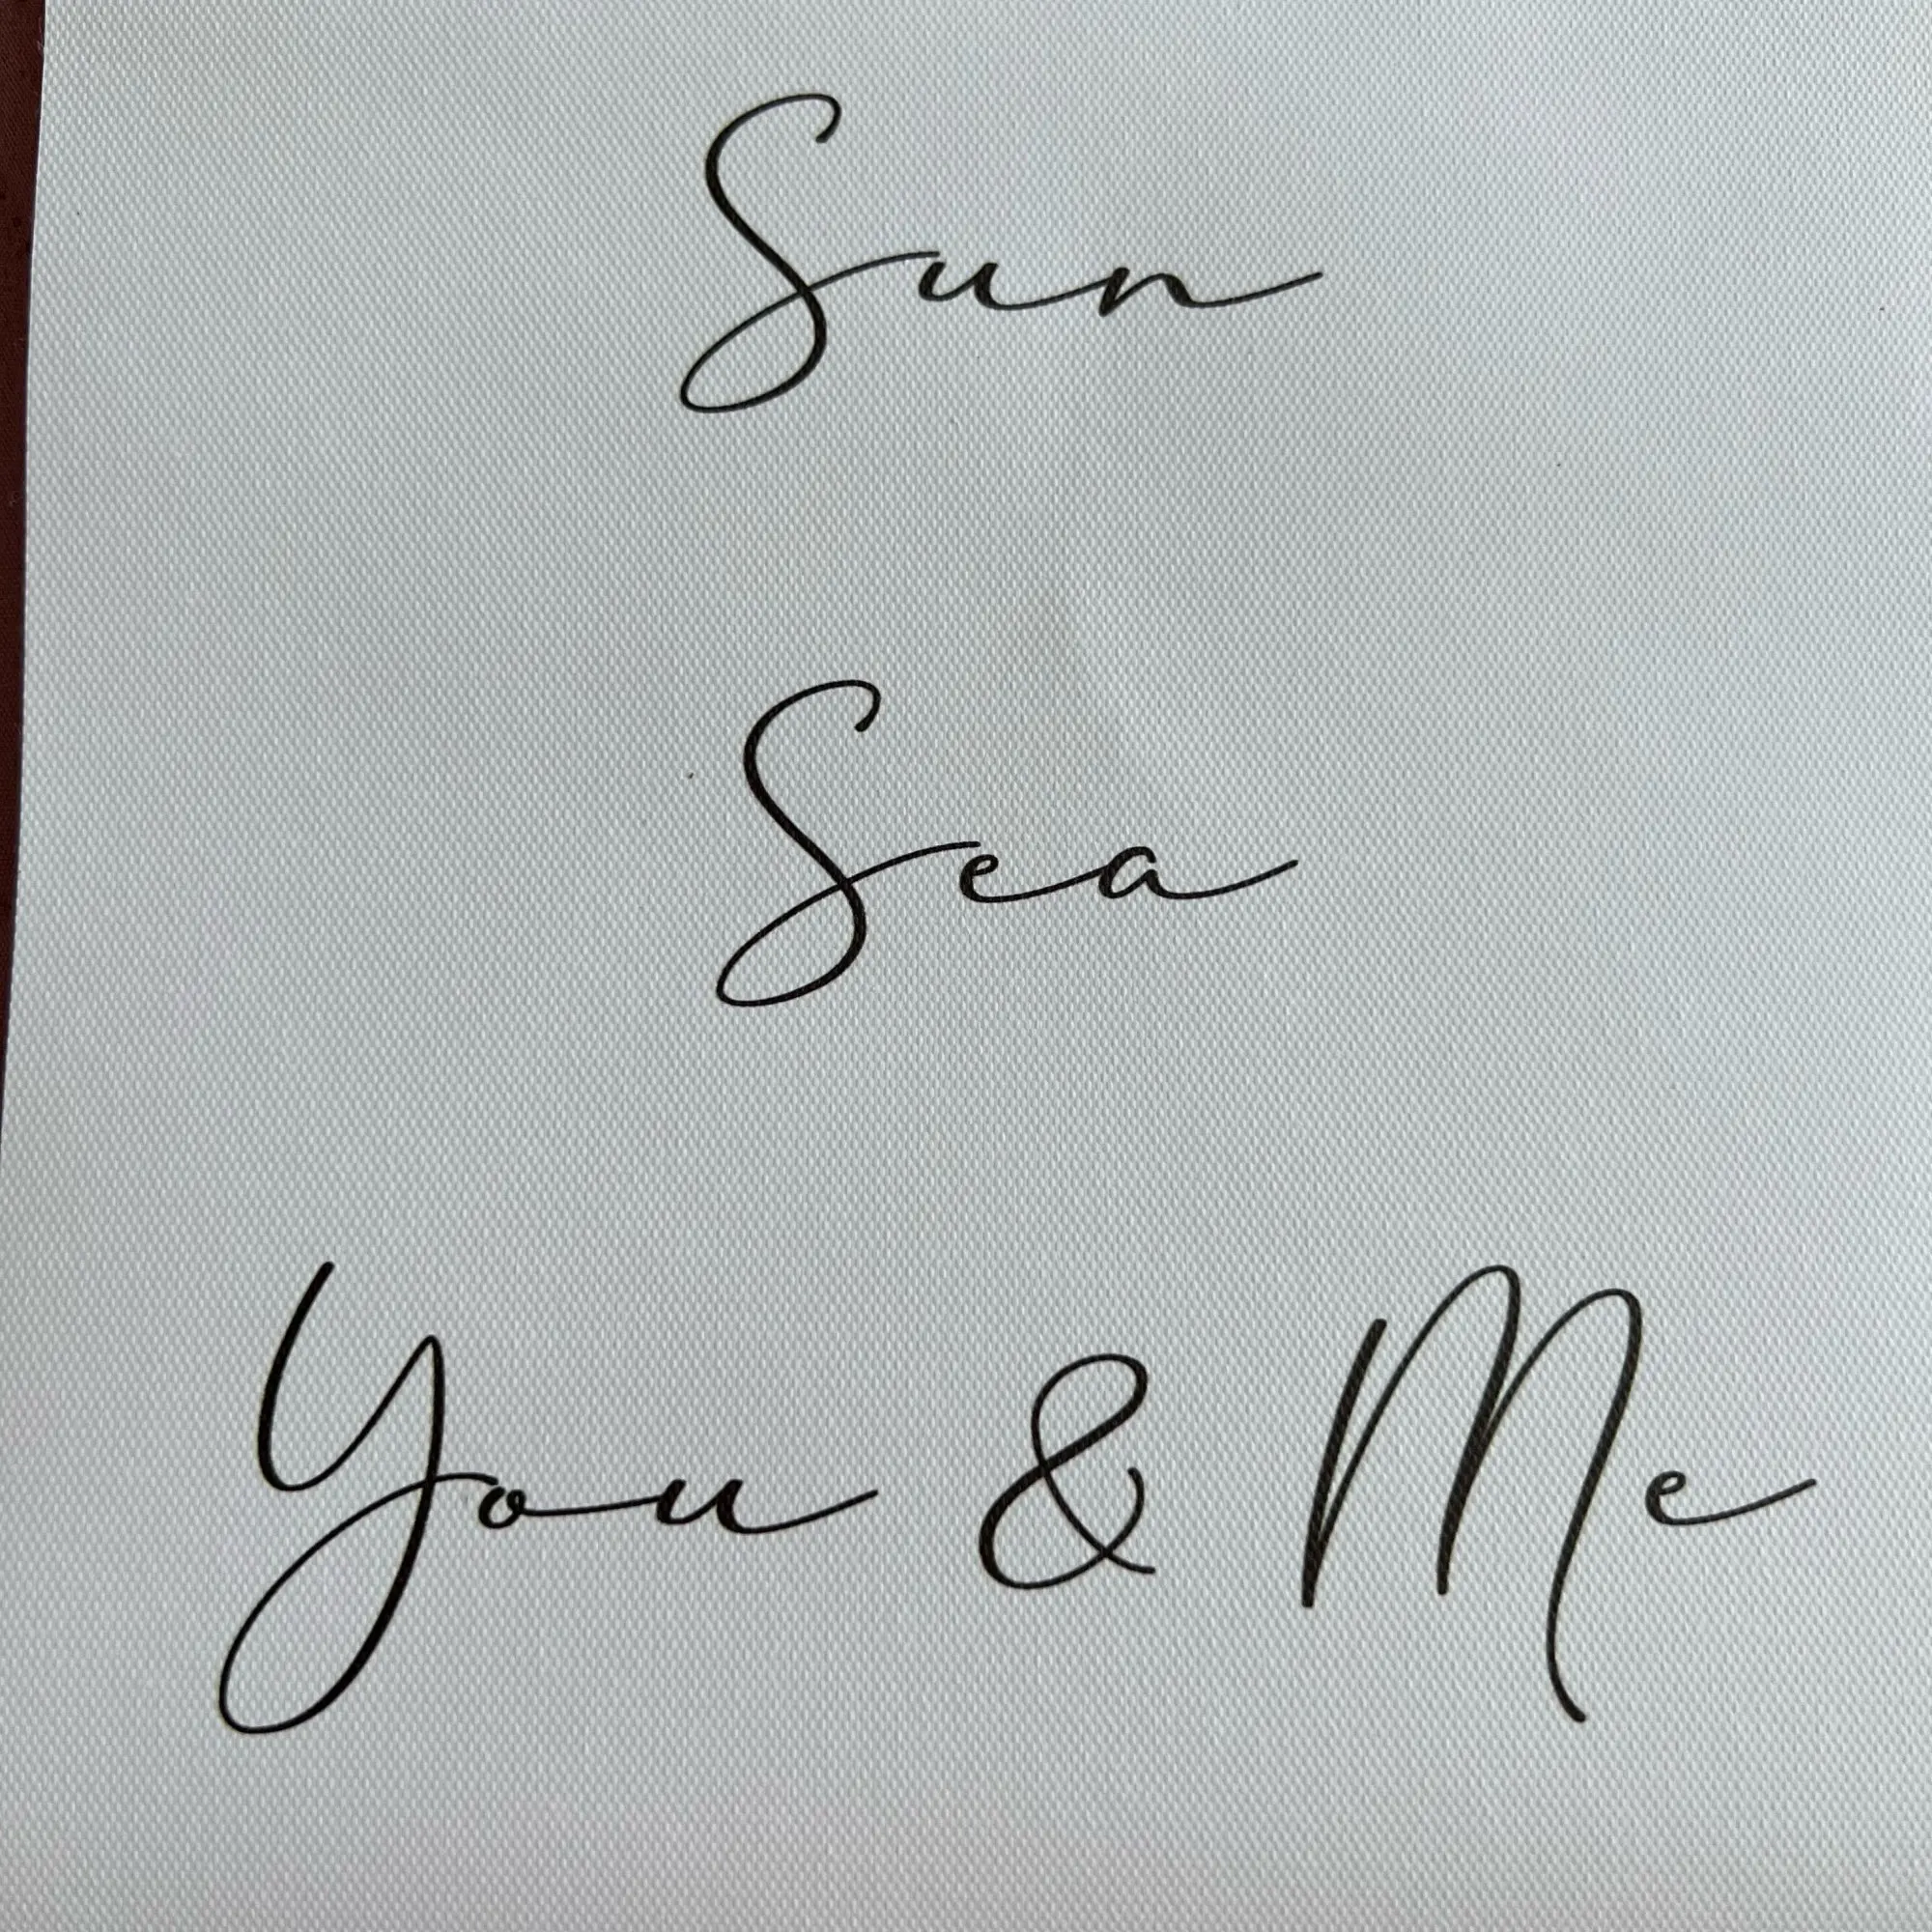 Sun
Sea
You & Me